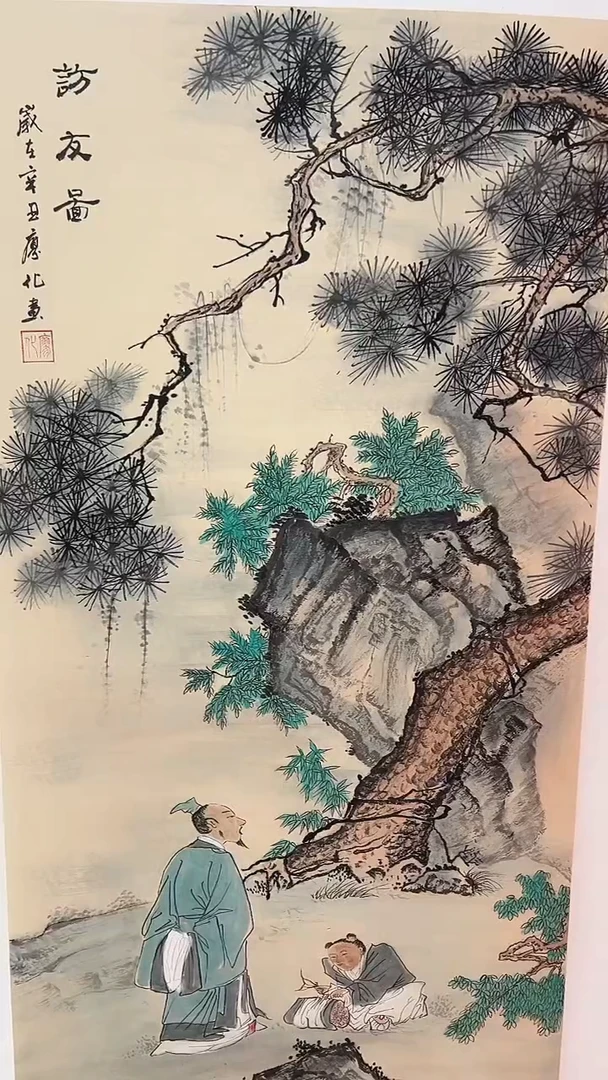 訪友圖
歲在辛丑應化畫